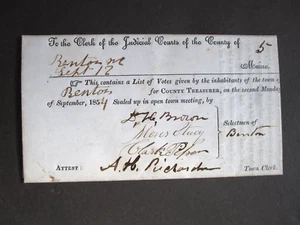 To the Clerk of the Judicial Courts of the County of
5
Benton, Me
Maine.
Sept 12
This contains a List of Votes given by the inhabitants of the town
Benton for COUNTY TREASURER, on the second Monday
of September, 1854 Sealed up in open town meeting, by
D. H. Brown
Selectmen of
Benton
ATTEST: A. H. Richardson Town Clerk